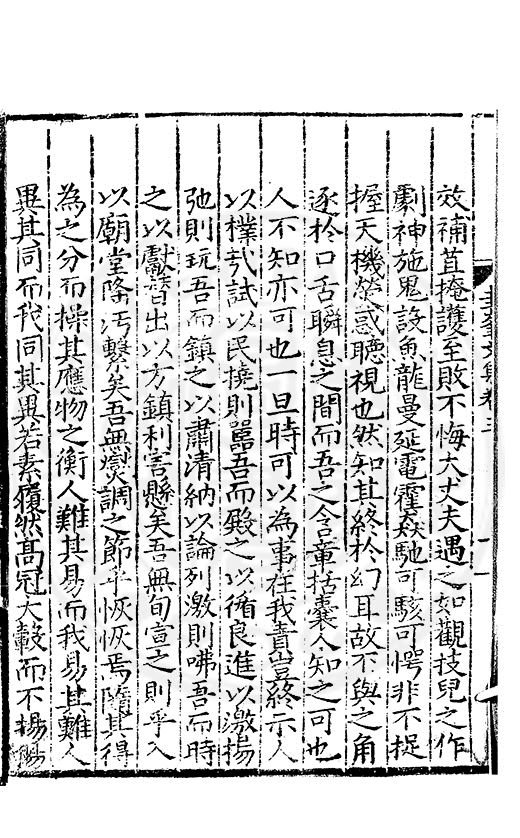 效補苴掩護至敗不悔大丈夫遇之如觀技兒之作
劇神施鬼設魚龍曼延電霍猋馳可駭可愕非不捉
握天機熒惑聽視也然知其終於幻耳故不與之角
逐於口舌瞬息之間而吾之含章括囊人知之可也
人不知亦可也一旦時可以為事在我責豈終示人
以樸哉試以民撓則嚚吾而殿之以循良進以激揚
弛則玩吾而鎮之以肅清納以論列激則咈吾而時
之以獻替出以方鎮利害懸矣吾無旬宣之則乎入
以廟堂隆汚繫矣吾無燮調之節乎恢恢焉隨其得
為之分而操其應物之衡人難其易而我易其難人
異其同而我同其異若素履然高冠大轂而不揚揚
文集卷三